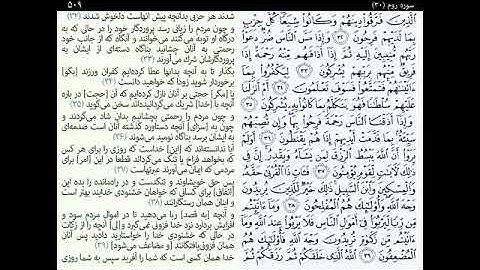 سوره روم (۳۰)
۵۰۹
ٱلَّذِينَ فَرَّقُوا۟ دِينَهُمْ وَكَانُوا۟ شِيَعًا كُلُّ حِزْبٍۭ
بِمَا لَدَيْهِمْ فَرِحُونَ ۝٣٢ وَإِذَا مَسَّ ٱلنَّاسَ ضُرٌّ دَعَوْا۟
رَبَّهُم مُّنِيبِينَ إِلَيْهِ ثُمَّ إِذَآ أَذَاقَهُم مِّنْهُ رَحْمَةً إِذَا
فَرِيقٌ مِّنْهُم بِرَبِّهِمْ يُشْرِكُونَ ۝٣٣ لِيَكْفُرُوا۟ بِمَآ
ءَاتَيْنَٰهُمْ فَتَمَتَّعُوا۟ فَسَوْفَ تَعْلَمُونَ ۝٣٤ أَمْ أَنزَلْنَا
عَلَيْهِمْ سُلْطَٰنًا فَهُوَ يَتَكَلَّمُ بِمَا كَانُوا۟ بِهِۦ يُشْرِكُونَ
۝٣٥ وَإِذَآ أَذَقْنَا ٱلنَّاسَ رَحْمَةً فَرِحُوا۟ بِهَا وَإِن تُصِبْهُمْ
سَيِّئَةٌۢ بِمَا قَدَّمَتْ أَيْدِيهِمْ إِذَا هُمْ يَقْنَطُونَ ۝٣٦ أَوَلَمْ
يَرَوْا۟ أَنَّ ٱللَّهَ يَبْسُطُ ٱلرِّزْقَ لِمَن يَشَآءُ وَيَقْدِرُ إِنَّ فِى
ذَٰلِكَ لَءَايَٰتٍ لِّقَوْمٍ يُؤْمِنُونَ ۝٣٧ فَـَٔاتِ ذَا ٱلْقُرْبَىٰ حَقَّهُۥ
وَٱلْمِسْكِينَ وَٱبْنَ ٱلسَّبِيلِ ذَٰلِكَ خَيْرٌ لِّلَّذِينَ يُرِيدُونَ
وَجْهَ ٱللَّهِ وَأُو۟لَٰٓئِكَ هُمُ ٱلْمُفْلِحُونَ ۝٣٨ وَمَآ ءَاتَيْتُم
مِّن رِّبًا لِّيَرْبُوَا۟ فِىٓ أَمْوَٰلِ ٱلنَّاسِ فَلَا يَرْبُوا۟ عِندَ ٱللَّهِ وَمَآ
ءَاتَيْتُم مِّن زَكَوٰةٍ تُرِيدُونَ وَجْهَ ٱللَّهِ فَأُو۟لَٰٓئِكَ هُمُ
ٱلْمُضْعِفُونَ ۝٣٩
شدند هر حزبی بدانچه پیش آنهاست دلخوش شدند (۳۲)
و چون مردم را زیانی رسد پروردگار خود را در حالی که به
درگاه او توبه می‌کنند می‌خوانند و آنگاه که از جانب خود
رحمتی به آنان چشانید بناگاه دسته‌ای از ایشان به
پروردگارشان شرک می‌آورند (۳۳)
بگذار تا به آنچه بدانها عطا کرده‌ایم کفران ورزند [بگو]
برخوردار شوید زودا که خواهید دانست (۳۴)
یا [مگر] حجتی بر آنان نازل کرده‌ایم که آن [حجت] در باره
آنچه با [خدا] شریک می‌گردانیده‌اند سخن می‌گوید (۳۵)
و چون مردم را رحمتی بچشانیم بدان شاد می‌گردند و
چون به [سزای] آنچه دستاورد گذشته آنان است صدمه‌ای
به ایشان برسد بناگاه نومید می‌شوند (۳۶)
آیا ندانسته‌اند که [این] خداست که روزی را برای هر کس
که بخواهد فراخ یا تنگ می‌گرداند قطعا در این [امر] برای
مردمی که ایمان می‌آورند عبرتهاست (۳۷)
پس حق خویشاوند و تنگدست و در راه‌مانده را بده این
[انفاق] برای کسانی که خواهان خشنودی خدایند بهتر است
و اینان همان رستگارانند (۳۸)
و آنچه [به قصد] ربا می‌دهید تا در اموال مردم سود و
افزایش بردارد نزد خدا فزونی نمی‌گیرد و[لی] آنچه را از زکات
در حالی که خشنودی خدا را خواستارید دادید پس آنان
همان فزونی‌یافتگانند [و مضاعف می‌شود] (۳۹)
خدا همان کسی است که شما را آفرید سپس به شما روزی